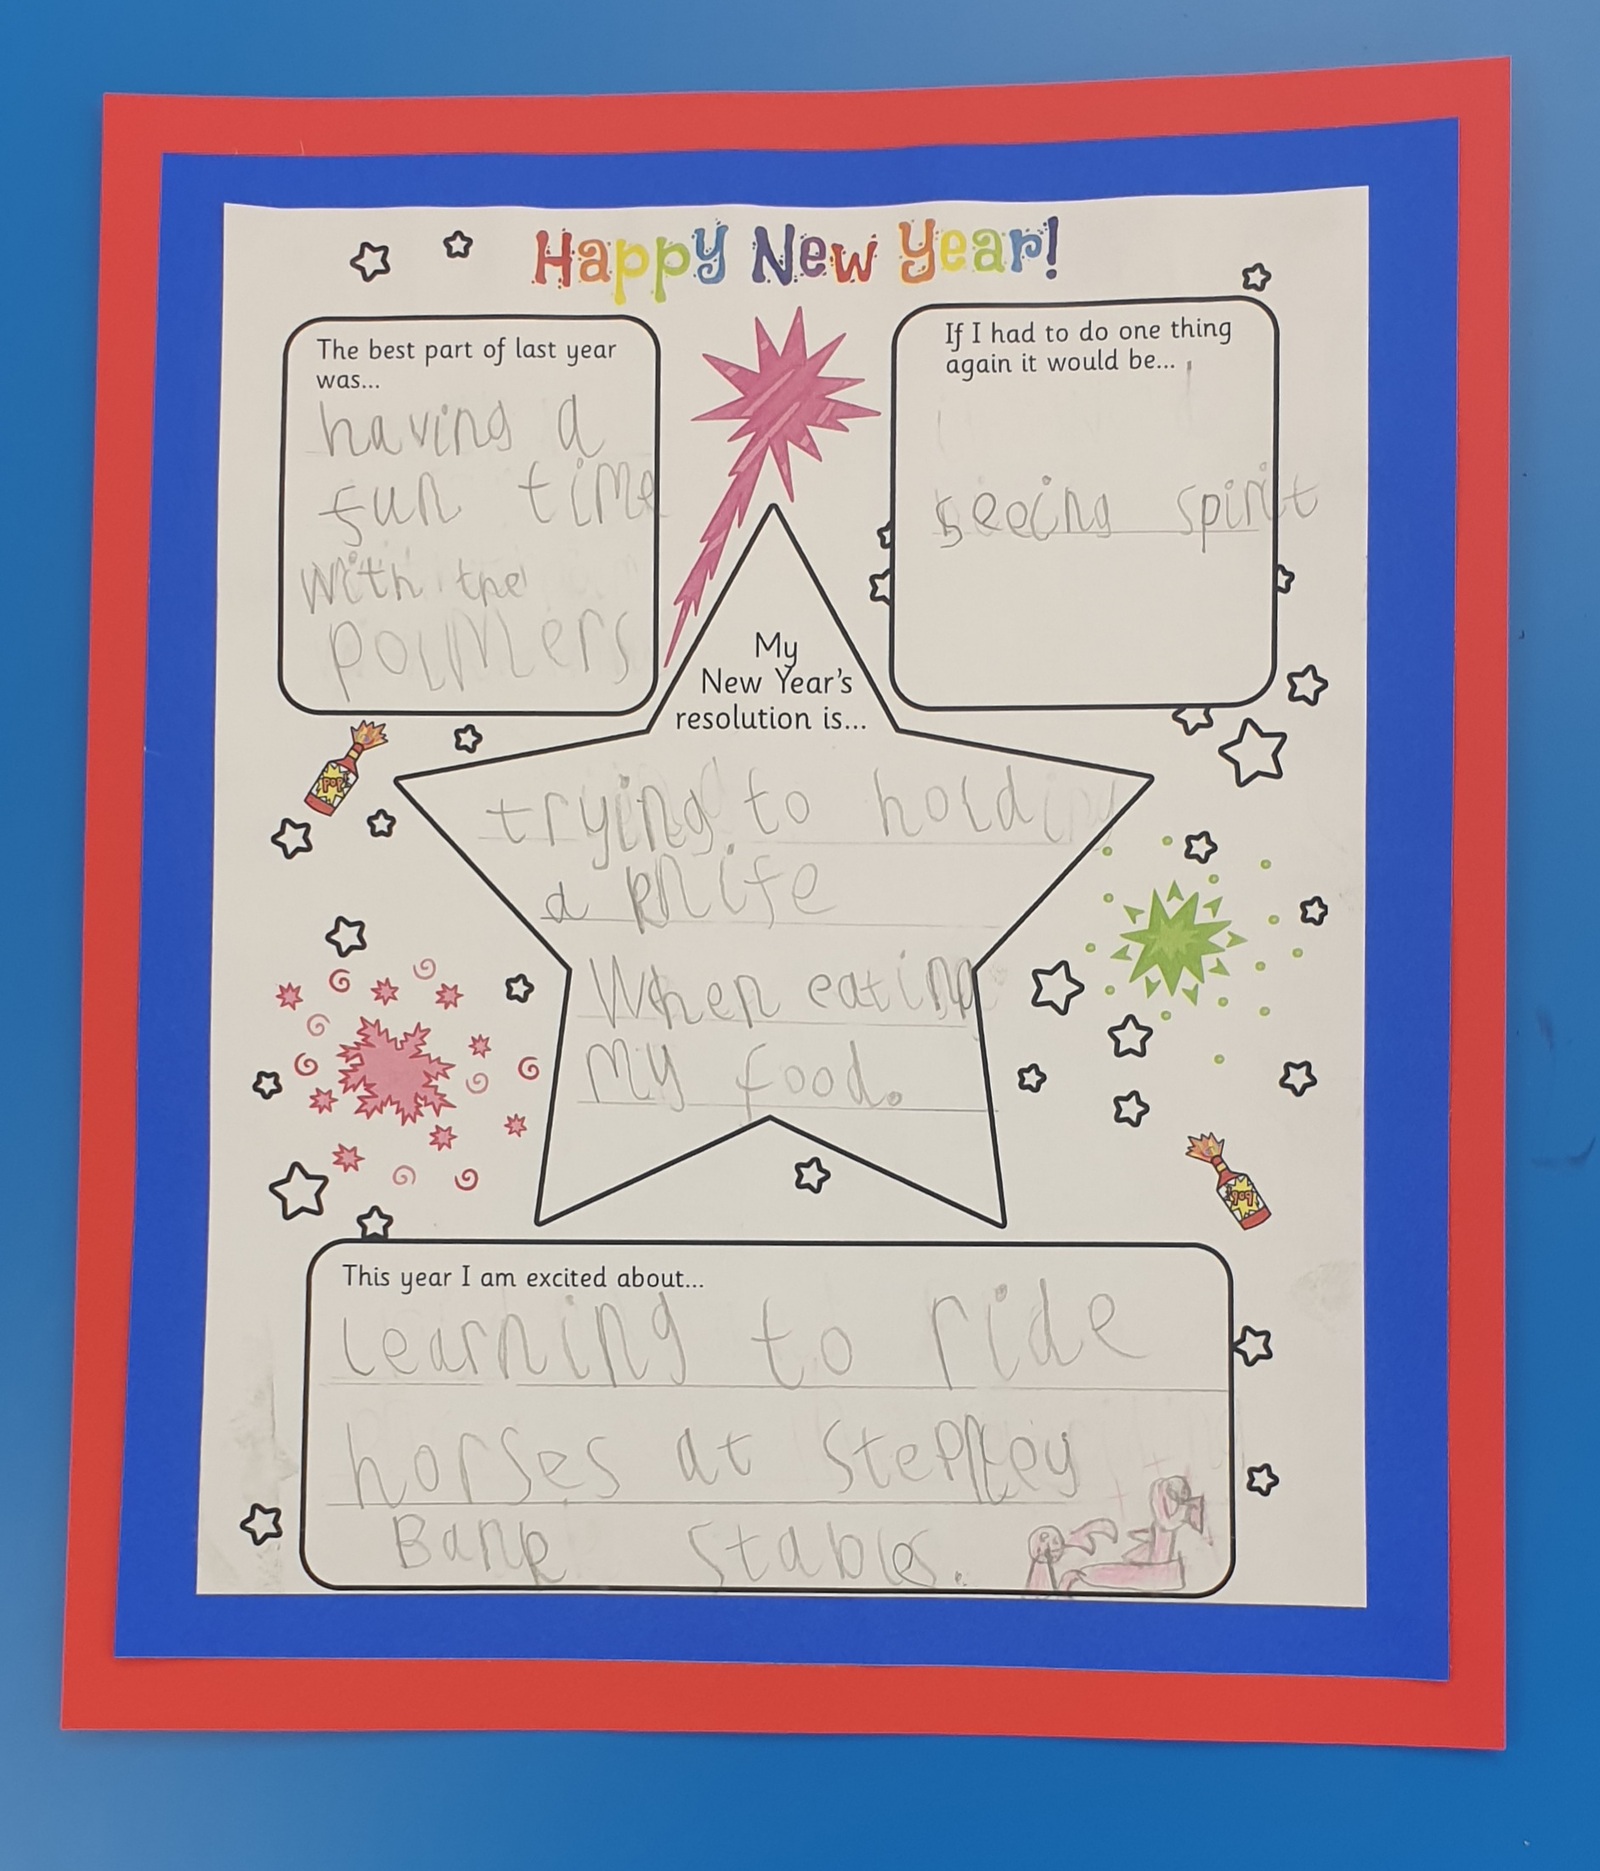 Happy New Year!
The best part of last year
was...
having a
fun time
with the
If I had to do one thing
again it would be...
seeing spirit
My
New Year's
resolution is...
trying to hold
a knife
When eating
my food.
POP!
POP!
This year I am excited about...
learning to ride
horses at Stepney
Bank stables.